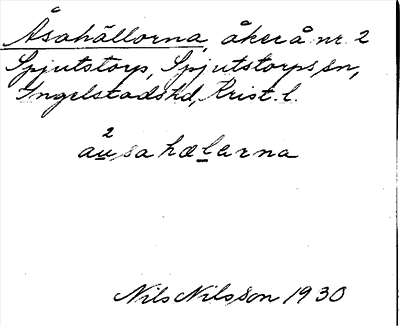 Åsahällorna, åker å nr. 2
Spjutstorp, Spjutstorps sn,
Ingelstads hd, Krist. l.
2
åu̲sahæl̲arna
Nils Nilsson 1930